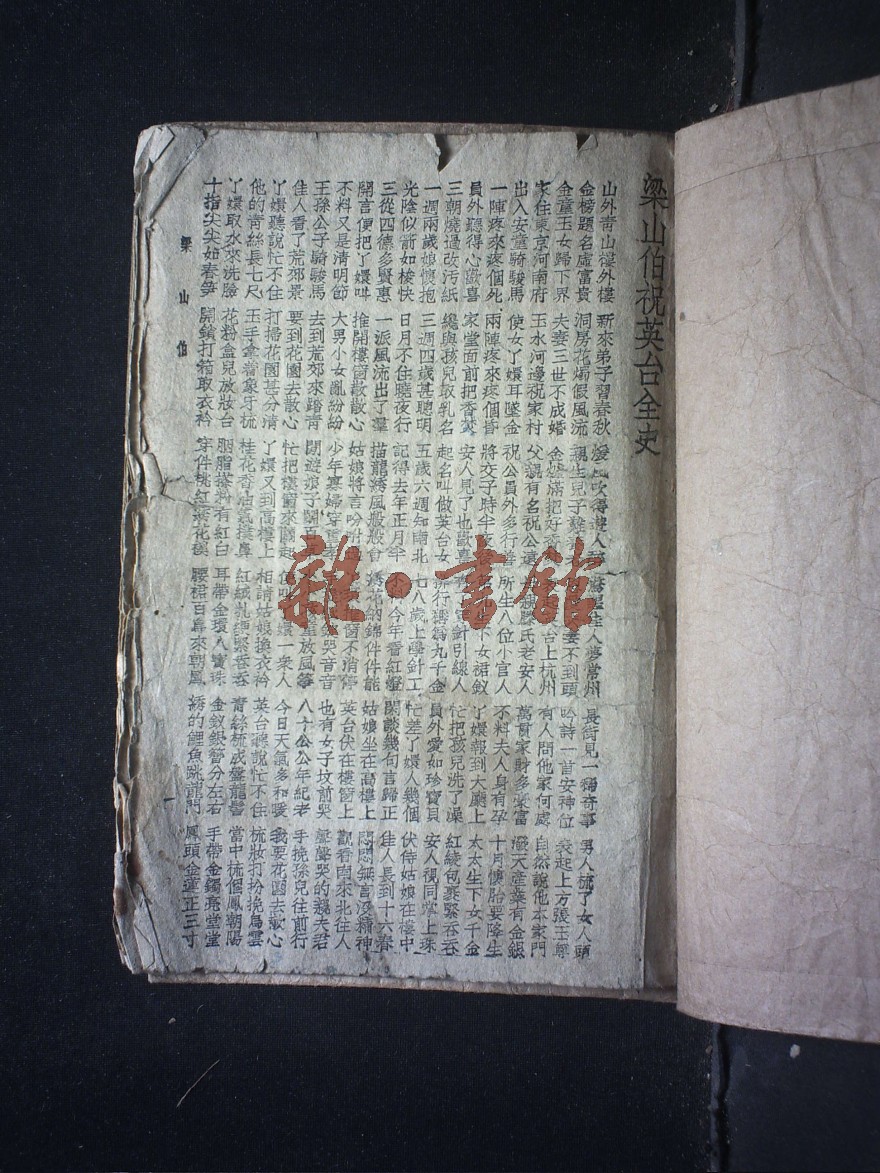 梁山伯祝英台全史
山外青山樓外樓 新來弟子習春秋 風吹得遊人 佳人夢常州 長街見一稀奇事 男人梳了女人頭
金榜題名虛富貴 洞房花燭假風流 親生兒子 妻不到頭 吟詩一首安神位 表起上方張玉尊
金童玉女歸下界 夫妻三世不成婚 金爐滿把好香 台上杭州 有人問他家何處 自然說他本家門
家住東京河南府 玉水河邊祝家村 父親有名祝公遠 滕氏老安人 萬貫家財多豪富 潑天產業有金銀
出入安童騎駿馬 使女丫嬛耳墜金 祝公員外多行善 所生八位小官人 不料夫人身有孕 十月懷胎要降生
一陣疼來疼個死 兩陣疼來疼個昏 將交子時半夜 下女裙釵 了嬛報到大廳上 太太生下女千金
員外聽得心歡喜 家堂面前把香焚 安人見了也歡喜 針引線人 忙把孩兒洗了澡 紅綾包裹緊吞吞
三朝燒過改污紙 纔與孩兒取乳名 起名叫做英台女 排行稱為九千金 員外愛如珍寶貝 安人視同掌上珠
一週兩歲娘懷抱 三週四歲甚聰明 五歲六週知南北 七八歲上學針工 忙差了嬛人幾個 伏侍姑娘在樓中
光陰似箭如梭快 日月不住聽夜行 記得去年正月半 不覺今年看紅燈 閑談幾句言歸正 佳人長到十六春
三從四德多賢惠 一派風流出了羣 描龍綉鳳般般會 綉花納錦件件能 姑娘坐在高樓上 悶悶無言沒精神
開言便把了嬛叫 推開樓窗散散心 姑娘將言吩咐 窗不消停 英台伏在樓窗上 觀看南來北往人
不料又是清明節 大男小女亂紛紛 少年寡婦穿 哭音音 也有女子坟前哭 聲聲哭的親夫君
王孫公子騎駿馬 去到荒郊來踏青 閑遊浪子鬧 放風箏 八十公公年紀老 手挽孫兒往前行
佳人看了荒郊景 要到花園去散心 忙把樓窗來關起 嬛一衆人 今日天氣多和暖 我要花園去散心
丫嬛聽說忙不住 打掃花園甚分清 了嬛又到高樓上 相請姑娘換衣衿 英台聽說忙不住 梳妝打扮挽烏雲
他的青絲長七尺 玉手拿着象牙梳 桂花香油氣撲鼻 紅絨扎硬緊吞吞 青絲梳成盤龍髻 當中梳個鳳朝陽
丫嬛取水來洗臉 花粉盒兒放妝台 胭脂搽料有紅白 耳帶金環八寶珠 金釵銀簪分左右 手帶金鐲亮堂堂
十指尖尖如春笋 開鎖打箱取衣衿 穿件桃紅 腰裙百鳥來朝鳳 綉的鯉魚跳龍門 鳳頭金蓮正三寸
梁山伯
一
雜·書館